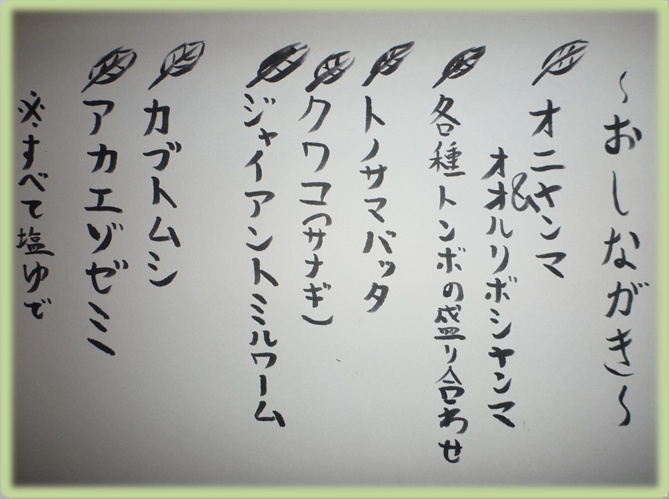 ～おしながき～
オニヤンマ
&
オオルリボシヤンマ
各種トンボの盛り合わせ
トノサマバッタ
クワコ(サナギ)
ジャイアントミルワーム
カブトムシ
アカエゾゼミ
※すべて塩ゆで